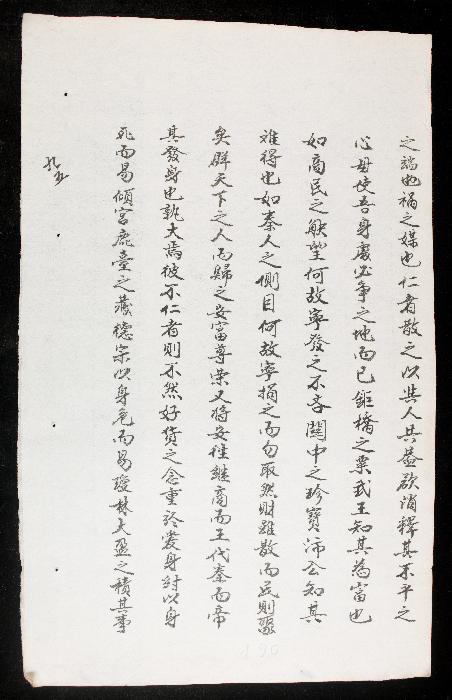 之端也禍之媒也仁者散之以與人共蓋欲消釋其不平之
心毋使吾身處必爭之地而已鉅橋之粟武王知其為富也
如商民之觖望何故寧發之不吝關中之珍寶沛公知其
難得也如秦人之側目何故寧捐之而勿取然財雖散而民則聚
矣群天下之人而歸之安富尊榮又將安往繼商而王代秦而帝
其發身也孰大焉彼不仁者則不然好貨之念重於愛身紂以身
死而易傾宮鹿臺之藏德宗以身危而易瓊林大盈之積其事
190